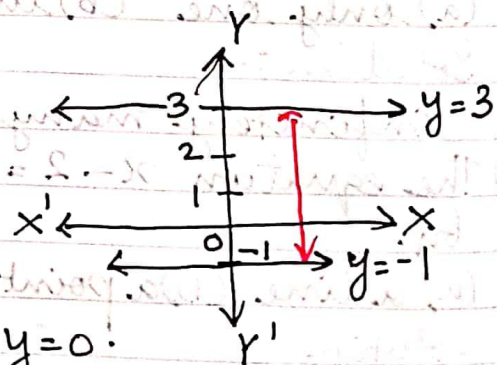 Y
3 y=3
2
1
X' X
0 -1
y=-1
y=0.
Y'